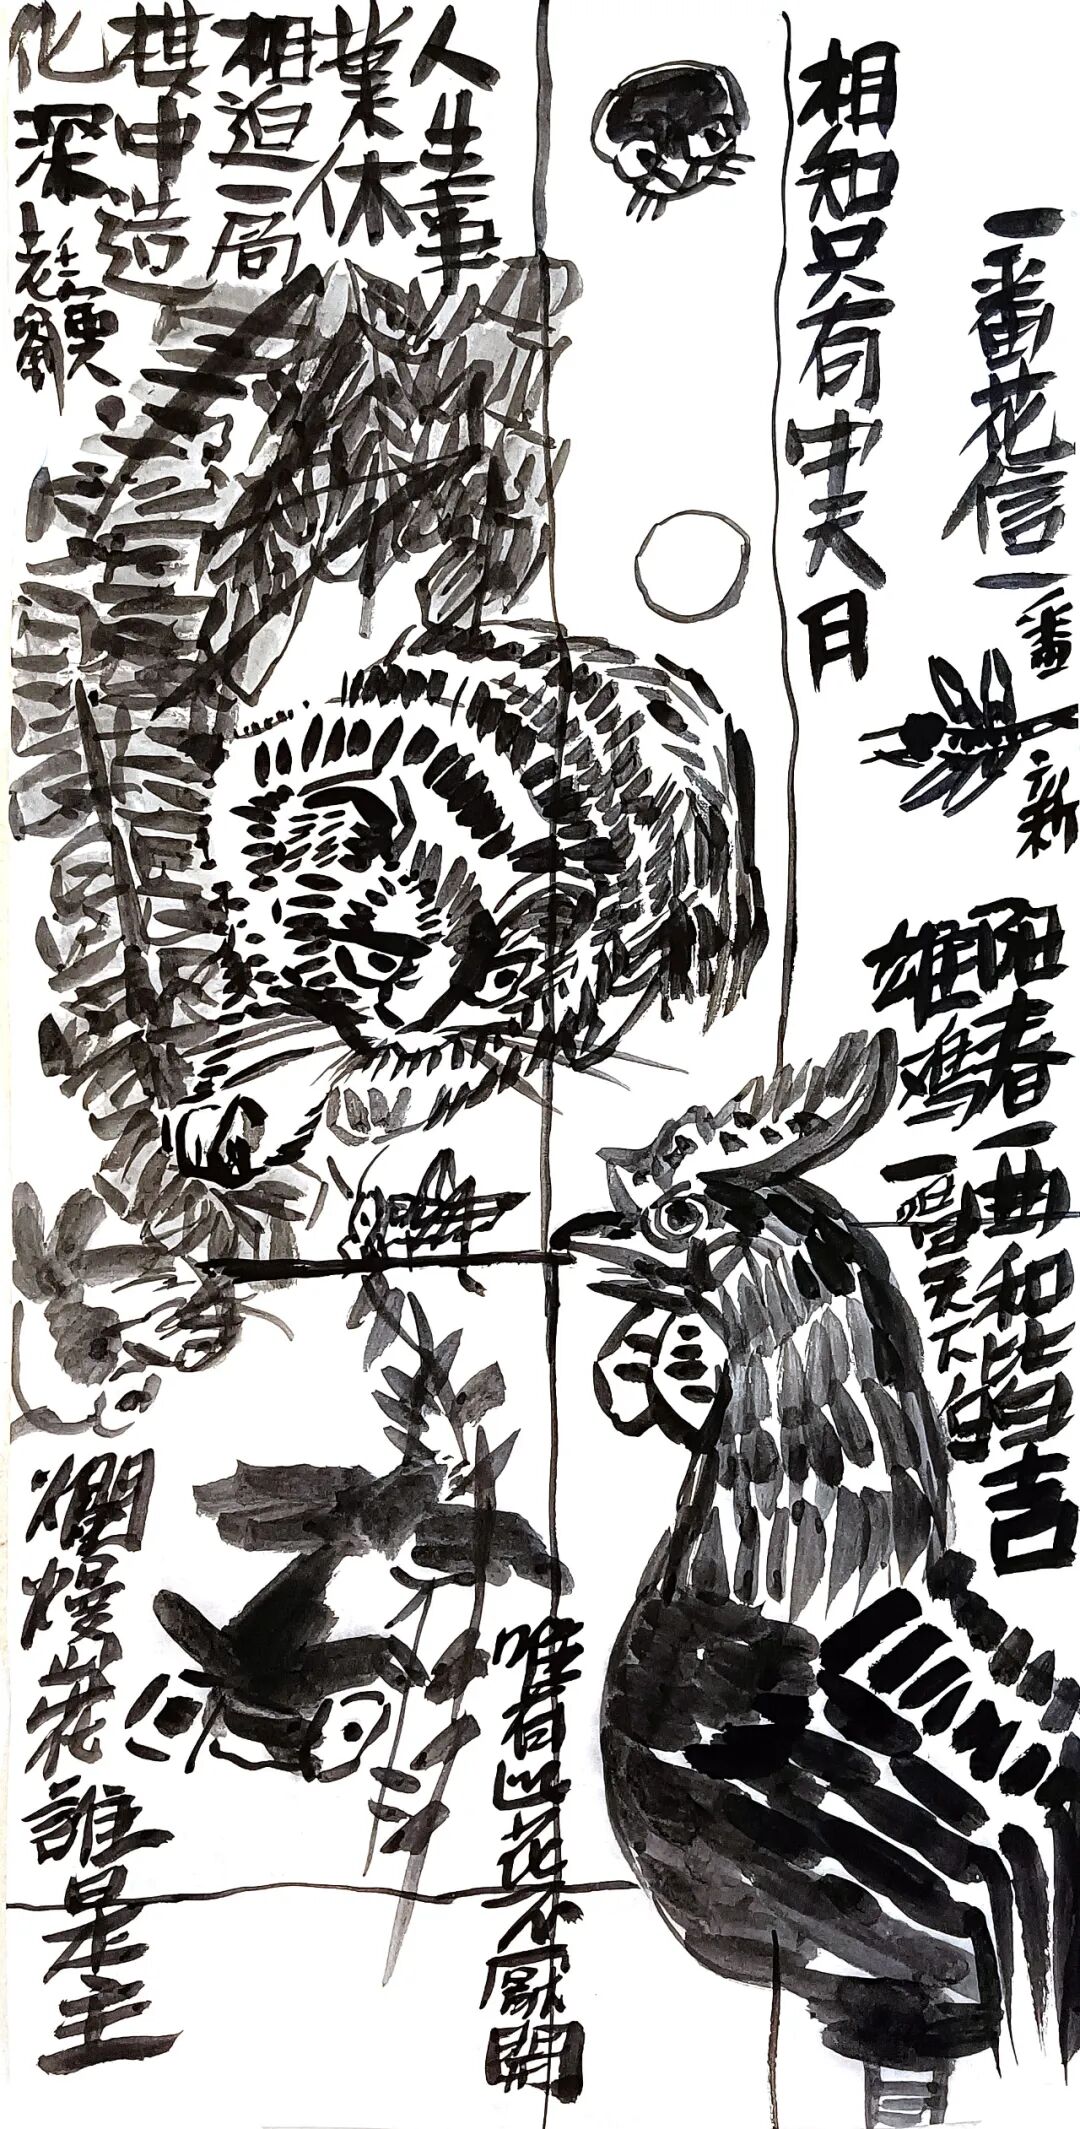 一番花信一番新
相知只有中天月
阳春一曲和皆吉
雄鸡一唱天下白
人生事
業休
相迫一局
棋中造
化深
唯有此花不厭開
爛熳花誰是主